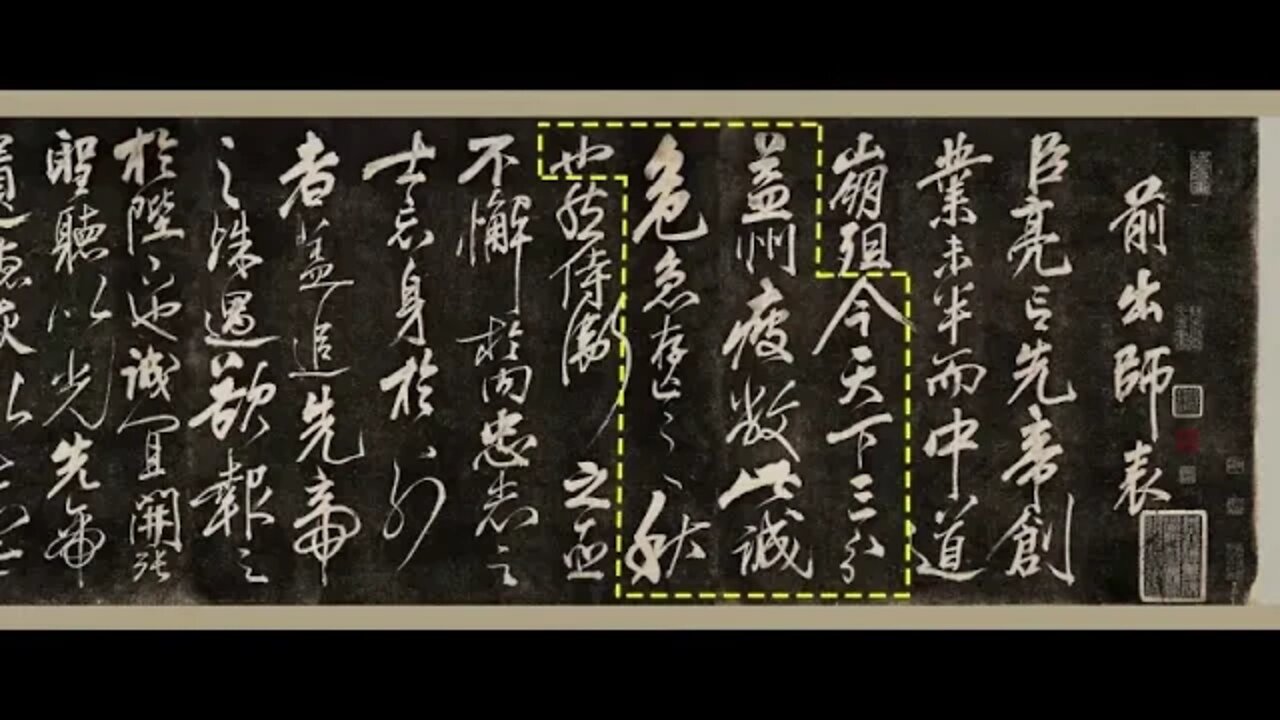 前出師表
臣亮言先帝創
業未半而中道
崩殂今天下三分
益州疲敝此誠
危急存亡之秋
也然侍衛之臣
不懈於内忠志之
士忘身於外
者蓋追先帝
之殊遇欲報之
於陛下也誠宜開張
聖聽以光先帝
遺德